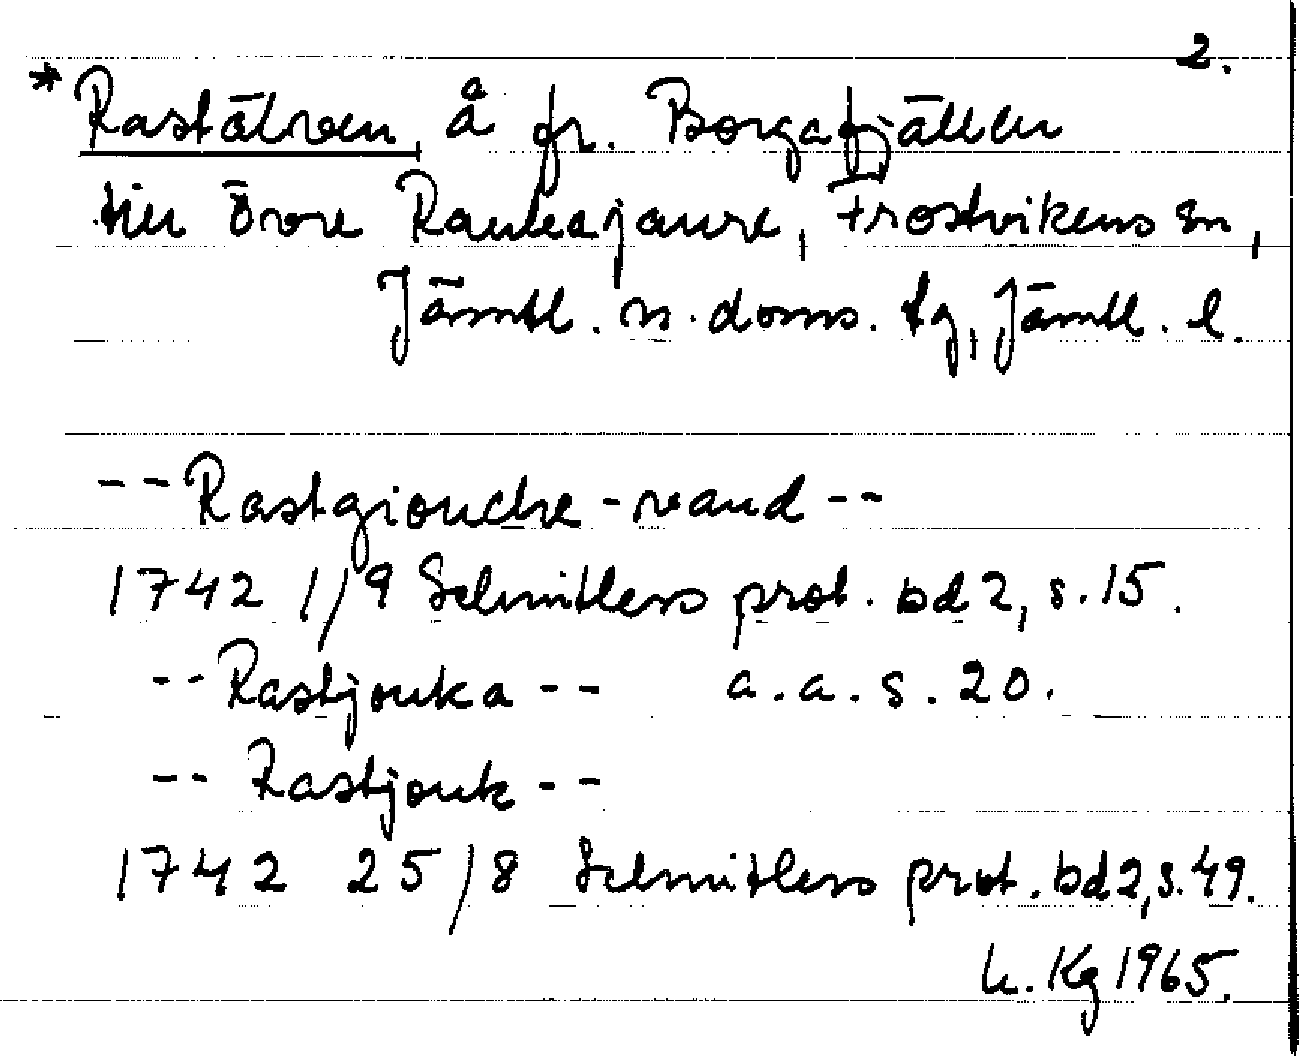 2.
*Rastälven, å fr. Borgafjällen
till Övre Raukasjaure, Frostvikens sn,
Jämtl. n. doms. tg, Jämtl. l.
--Rastgiouche-neaud--
1742 1/9 Schnitlers prot. bd 2, s. 15.
--Rastjouka-- a.a. s. 20.
--Rastjouk--
1742 25/8 Schnitlers prot. bd 2, s. 49.
Kg 1965.